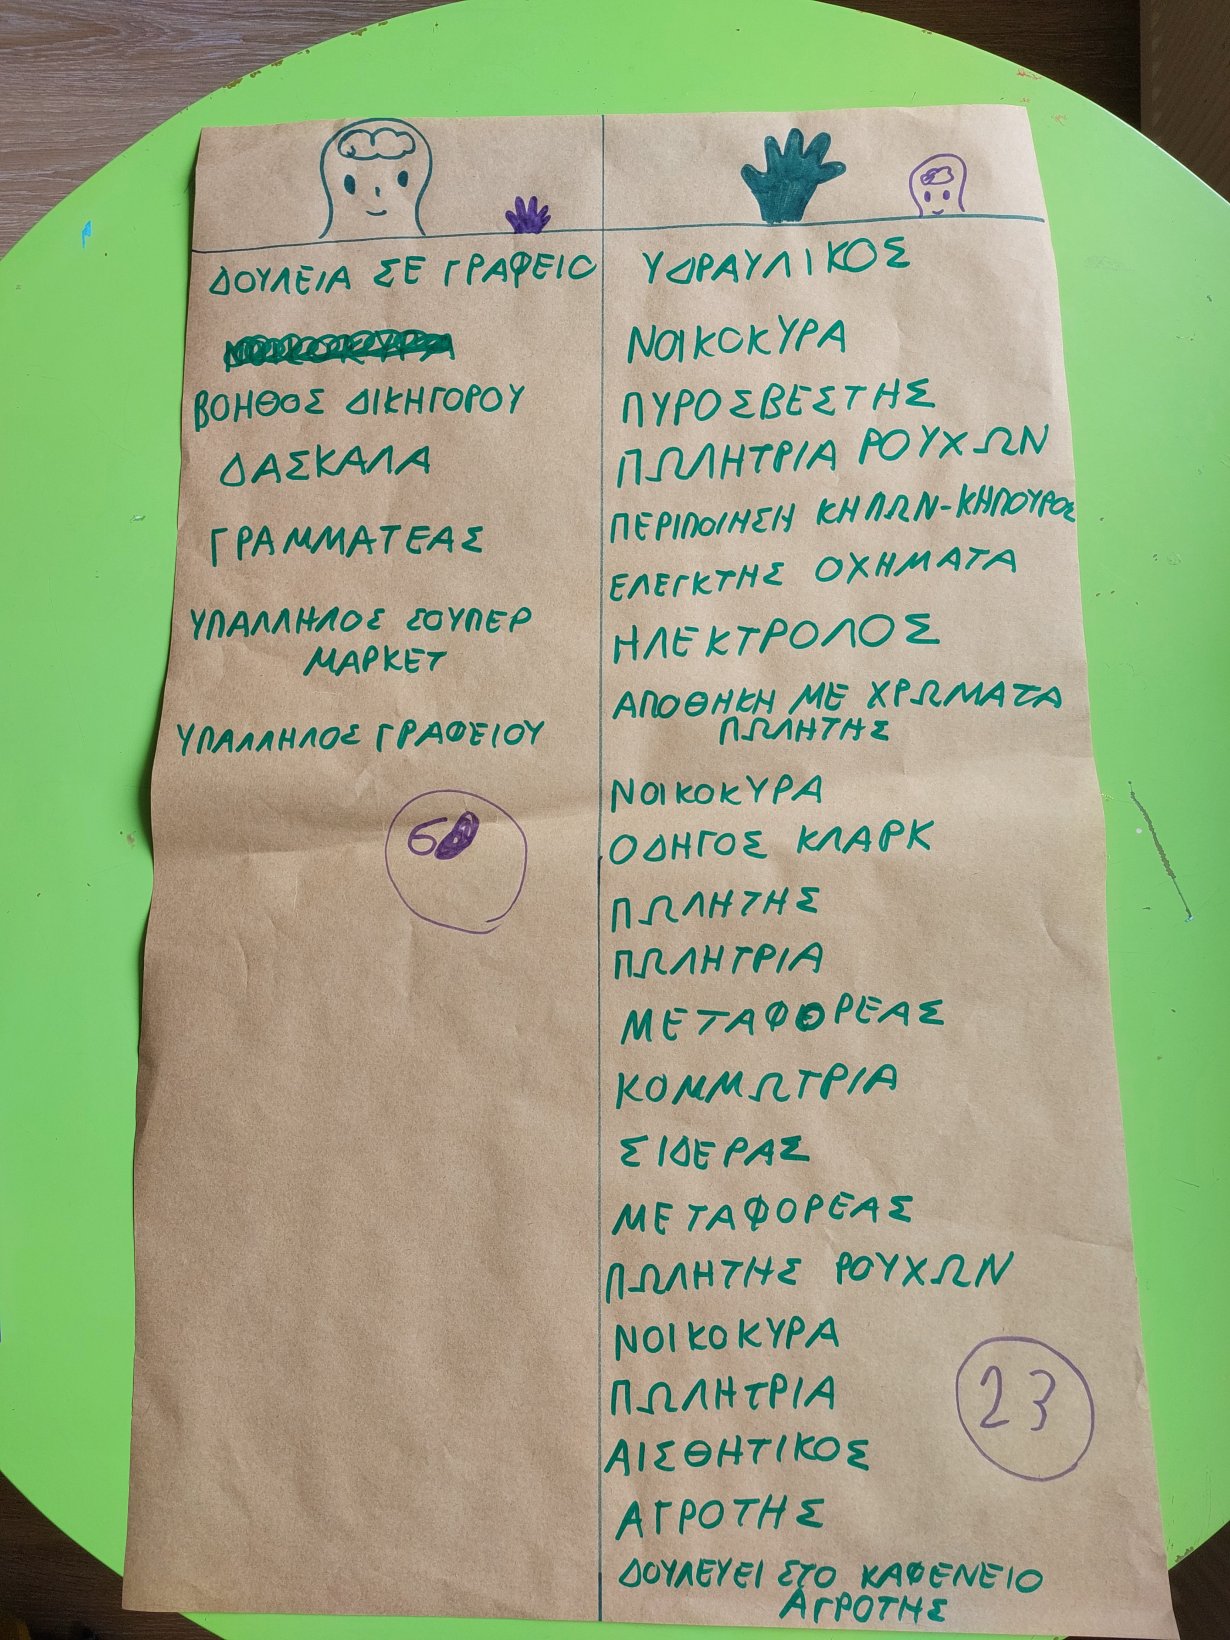 ΔΟΥΛΕΙΑ ΣΕ ΓΡΑΦΕΙΟ
ΒΟΗΘΟΣ ΔΙΚΗΓΟΡΟΥ
ΔΑΣΚΑΛΑ
ΓΡΑΜΜΑΤΕΑΣ
ΥΠΑΛΛΗΛΟΣ ΣΟΥΠΕΡ
ΜΑΡΚΕΤ
ΥΠΑΛΛΗΛΟΣ ΓΡΑΦΕΙΟΥ
6
ΥΔΡΑΥΛΙΚΟΣ
ΝΟΙΚΟΚΥΡΑ
ΠΥΡΟΣΒΕΣΤΗΣ
ΠΩΛΗΤΡΙΑ ΡΟΥΧΩΝ
ΠΕΡΙΠΟΙΗΣΗ ΚΗΠΩΝ-ΚΗΠΟΥΡΟΣ
ΕΛΕΓΚΤΗΣ ΟΧΗΜΑΤΑ
ΗΛΕΚΤΡΟΛΟΣ
ΑΠΟΘΗΚΗ ΜΕ ΧΡΩΜΑΤΑ
ΠΩΛΗΤΗΣ
ΝΟΙΚΟΚΥΡΑ
ΟΔΗΓΟΣ ΚΛΑΡΚ
ΠΩΛΗΤΗΣ
ΠΩΛΗΤΡΙΑ
ΜΕΤΑΦΟΡΕΑΣ
ΚΟΜΜΩΤΡΙΑ
ΣΙΔΕΡΑΣ
ΜΕΤΑΦΟΡΕΑΣ
ΠΩΛΗΤΗΣ ΡΟΥΧΩΝ
ΝΟΙΚΟΚΥΡΑ
ΠΩΛΗΤΡΙΑ
ΑΙΣΘΗΤΙΚΟΣ
ΑΓΡΟΤΗΣ
ΔΟΥΛΕΥΕΙ ΣΤΟ ΚΑΦΕΝΕΙΟ
ΑΓΡΟΤΗΣ
23